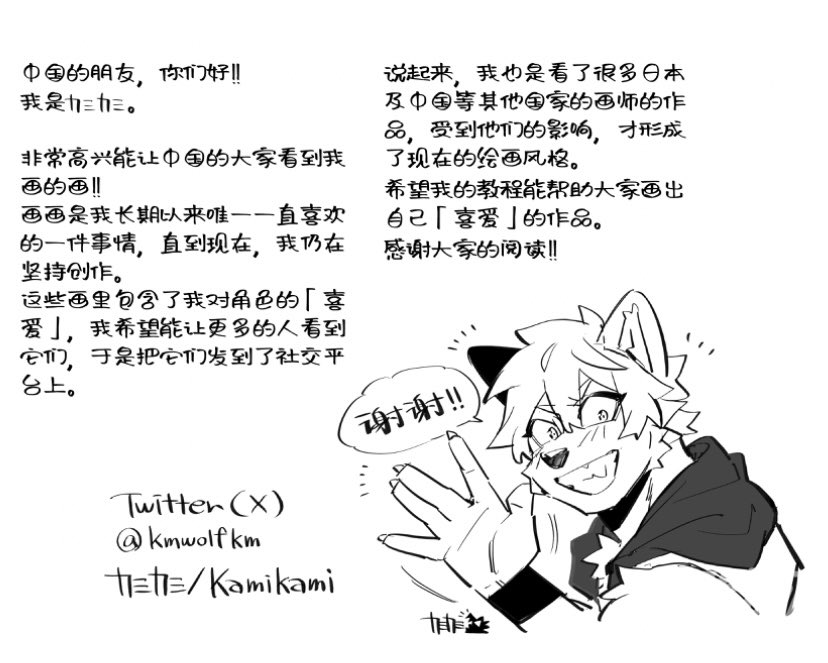 中国的朋友，你们好!!
我是カミカミ。
非常高兴能让中国的大家看到我
画的画!!
画画是我长期以来唯一一直喜欢
的一件事情，直到现在，我仍在
坚持创作。
这些画里包含了我对角色的「喜
爱」，我希望能让更多的人看到
它们，于是把它们发到了社交平
台上。
说起来，我也是看了很多日本
及中国等其他国家的画师的作
品，受到他们的影响，才形成
了现在的绘画风格。
希望我的教程能帮助大家画出
自己「喜爱」的作品。
感谢大家的阅读!!
谢谢!!
Twitter(X)
@kmwolfkm
カミカミ/Kamikami
カミカミ